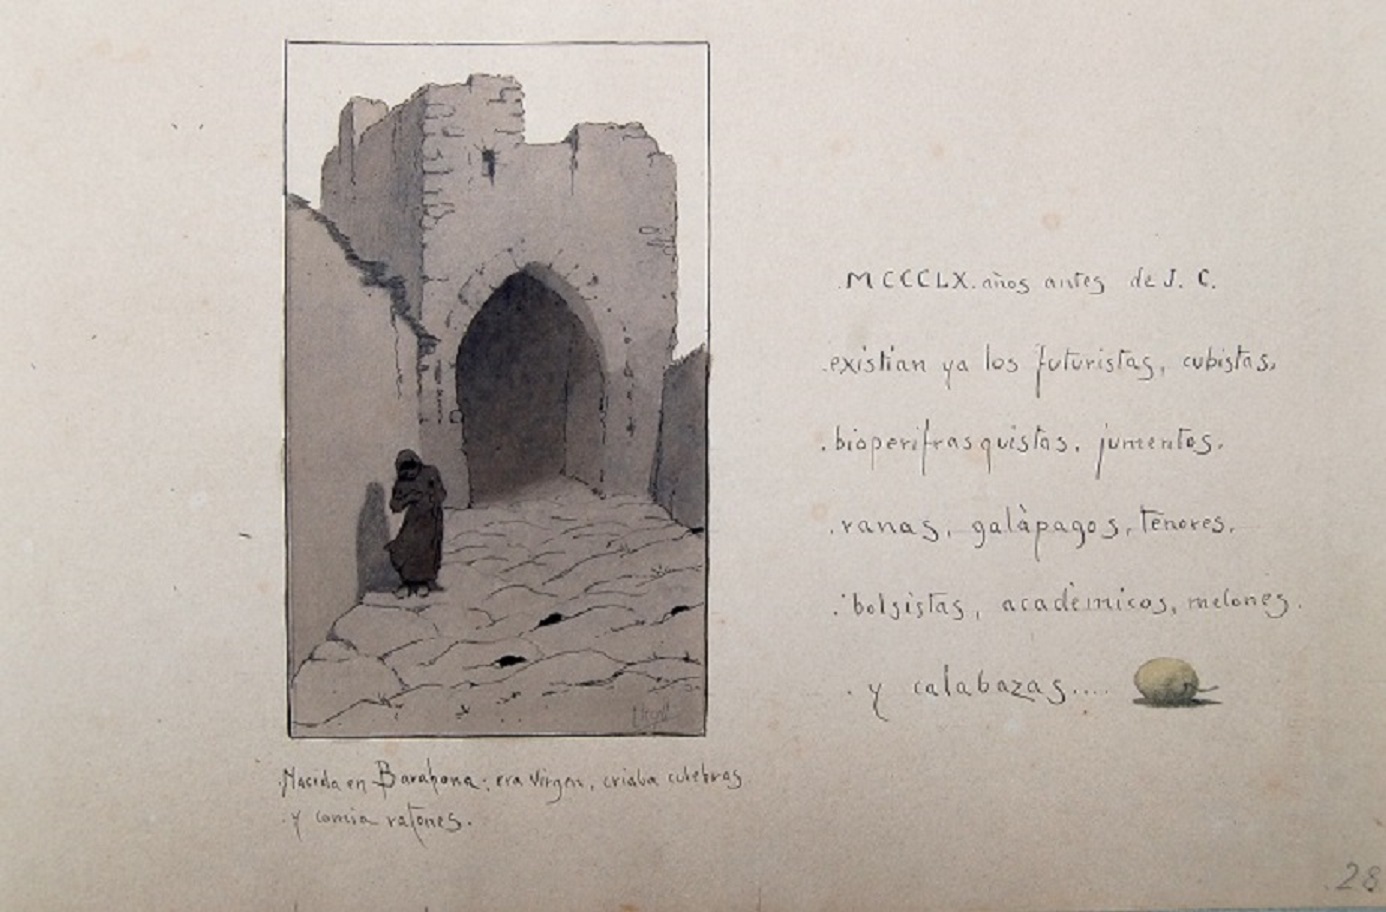 .MCCCLX. años antes de J. C.
.existian ya los futuristas, cubistas,
.bioperifrasquistas, jumentos.
.ranas, galàpagos, tenores.
.bolsistas, acadèmicos, melones.
. y calabazas....
.Nacida en Barahona; era virgen, criaba culebras
. y comia ratones.
.28